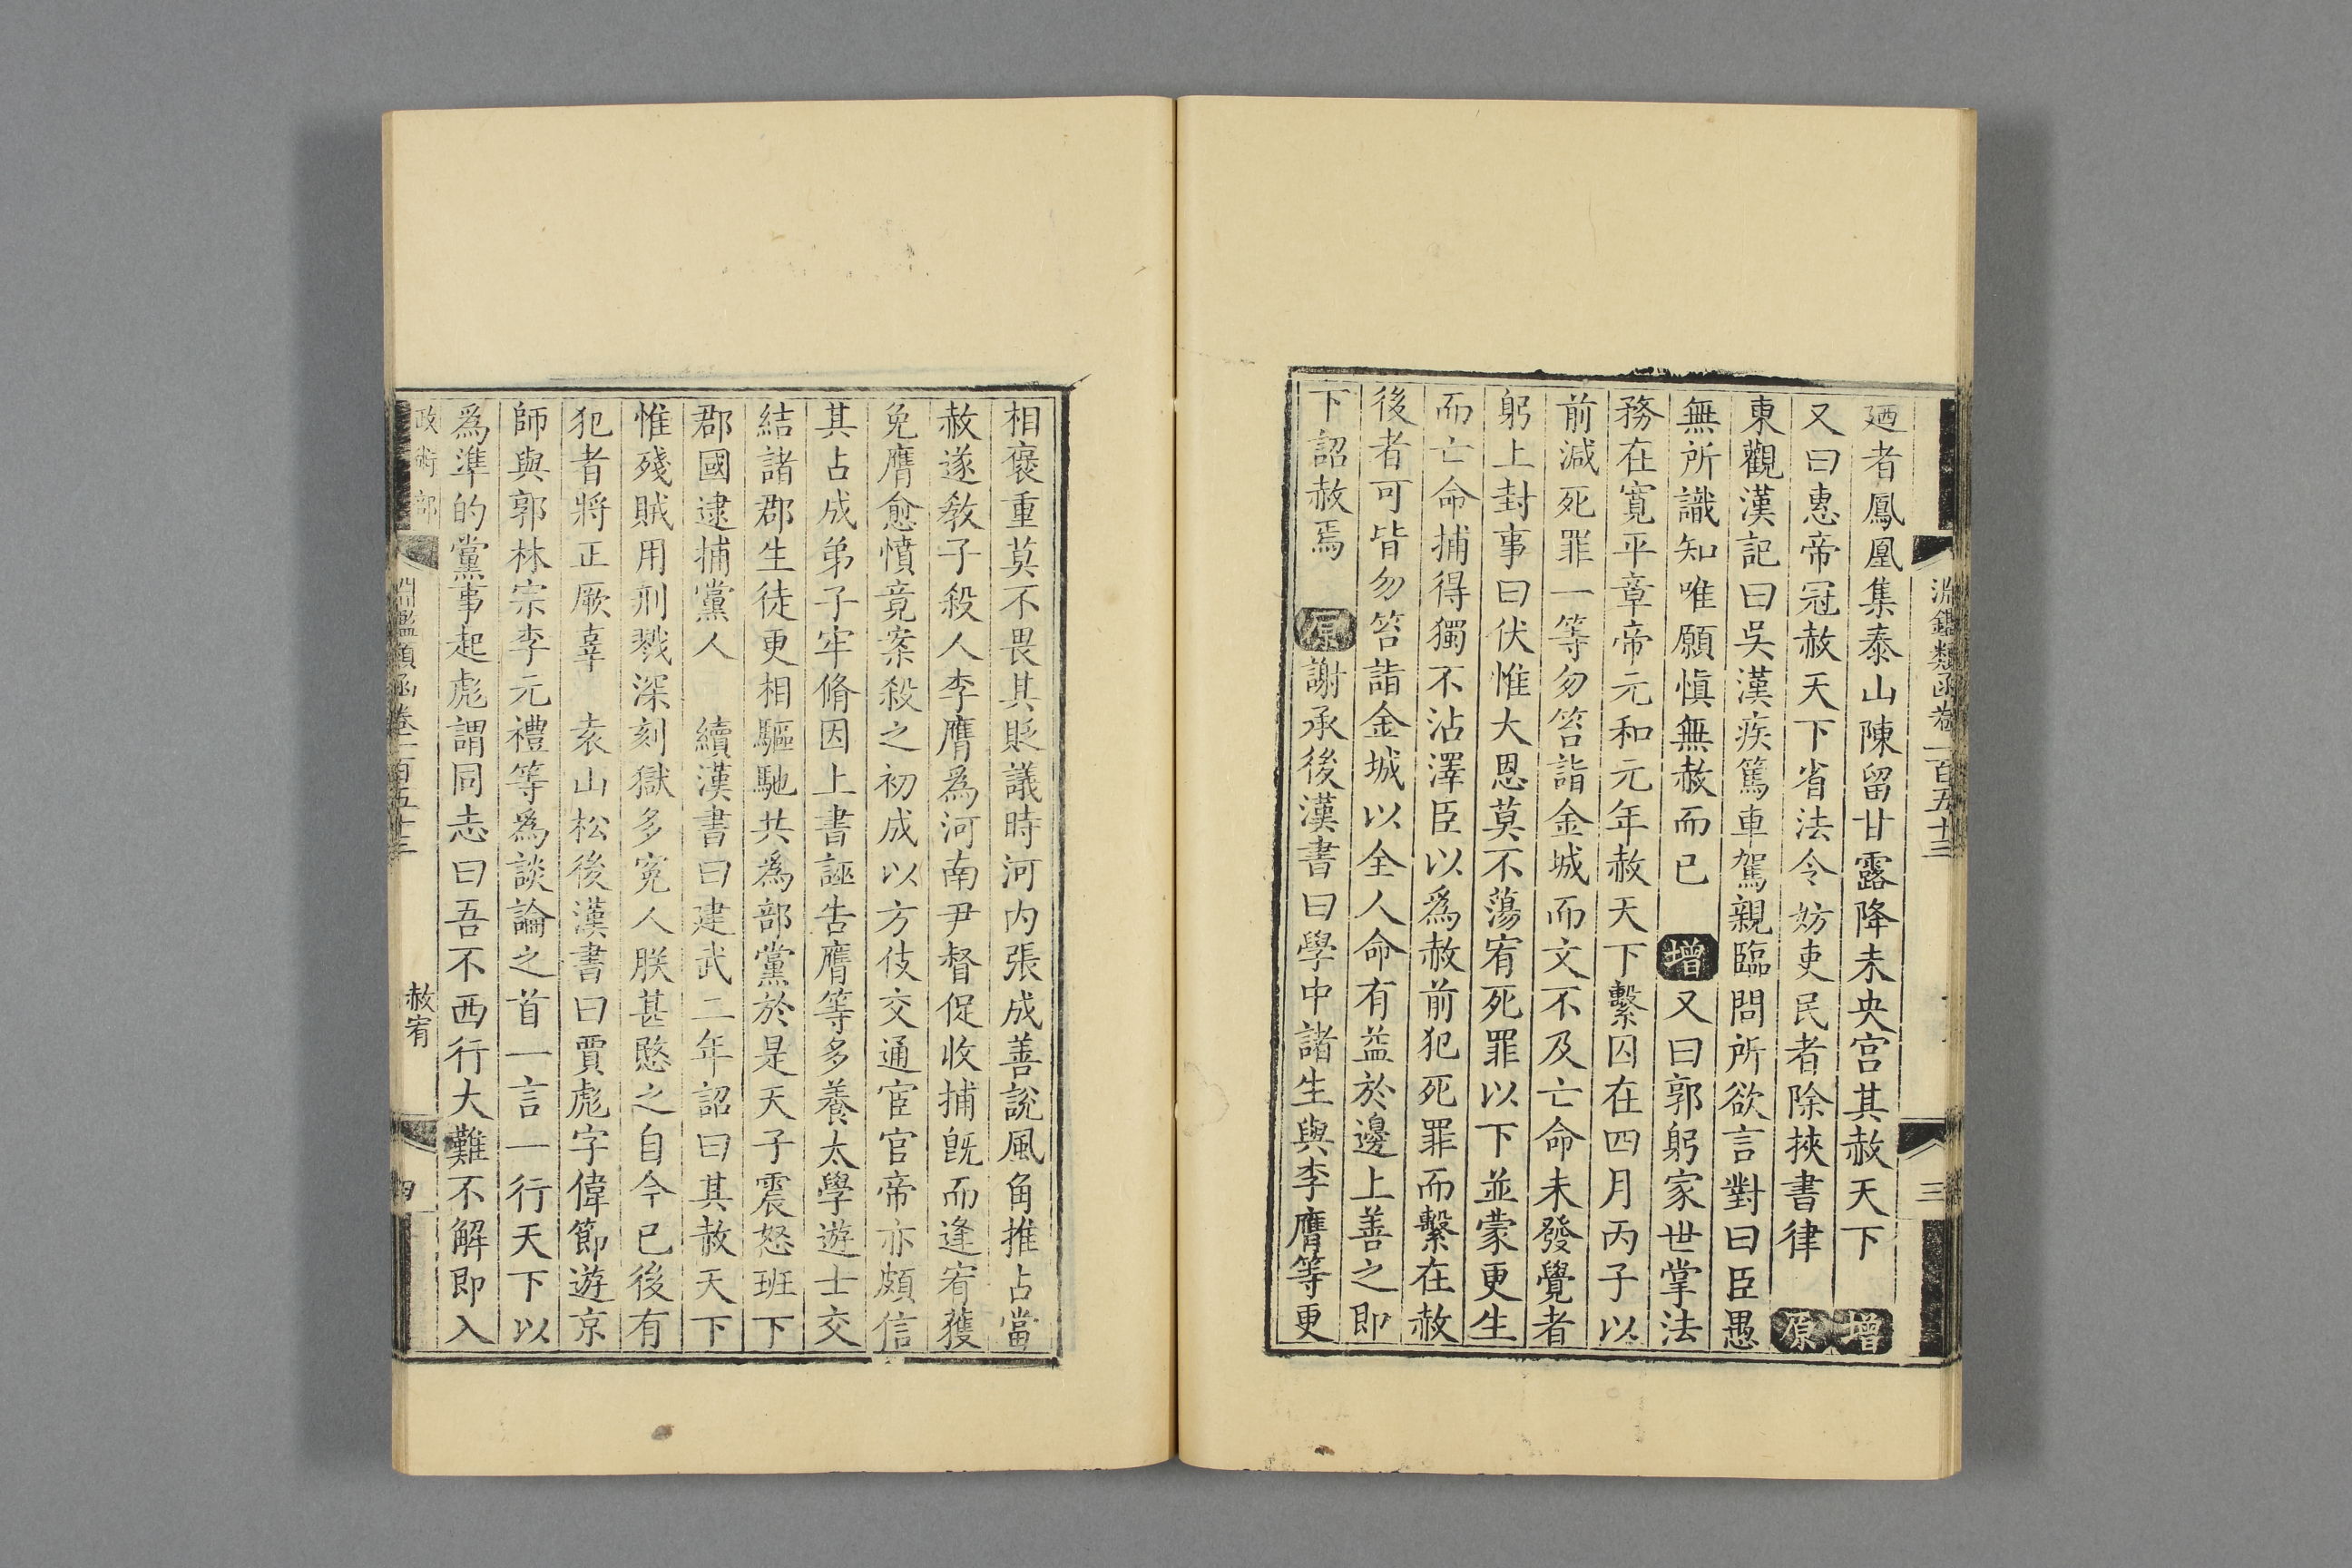 淵鑑類函卷一百五十三
三
廼者鳳凰集泰山陳留甘露降未央宮其赦天下 增
又曰惠帝冠赦天下省法令妨吏民者除挾書律 原
東觀漢記曰吳漢疾篤車駕親臨問所欲言對曰臣愚
無所識知唯願愼無赦而已 增 又曰郭躬家世掌法
務在寬平章帝元和元年赦天下繫囚在四月丙子以
前減死罪一等勿笞詣金城而文不及亡命未發覺者
躬上封事曰伏惟大恩莫不蕩宥死罪以下並蒙更生
而亡命捕得獨不沾澤臣以爲赦前犯死罪而繫在赦
後者可皆勿笞詣金城以全人命有益於邊上善之即
下詔赦焉 原 謝承後漢書曰學中諸生與李膺等更
相褒重莫不畏其貶議時河内張成善說風角推占當
赦遂敎子殺人李膺爲河南尹督促收捕旣而逢宥獲
免膺愈憤竟案殺之初成以方伎交通宦官帝亦頗信
其占成弟子牢脩因上書誣告膺等多養太學遊士交
結諸郡生徒更相驅馳共爲部黨於是天子震怒班下
郡國逮捕黨人 續漢書曰建武二年詔曰其赦天下
惟殘賊用刑戮深刻獄多寃人朕甚愍之自今已後有
犯者將正厥辜 袁山松後漢書曰賈彪字偉節遊京
師與郭林宗李元禮等爲談論之首一言一行天下以
爲準的黨事起彪謂同志曰吾不西行大難不解即入
政術部
淵鑑類函卷一百五十三
赦宥
四